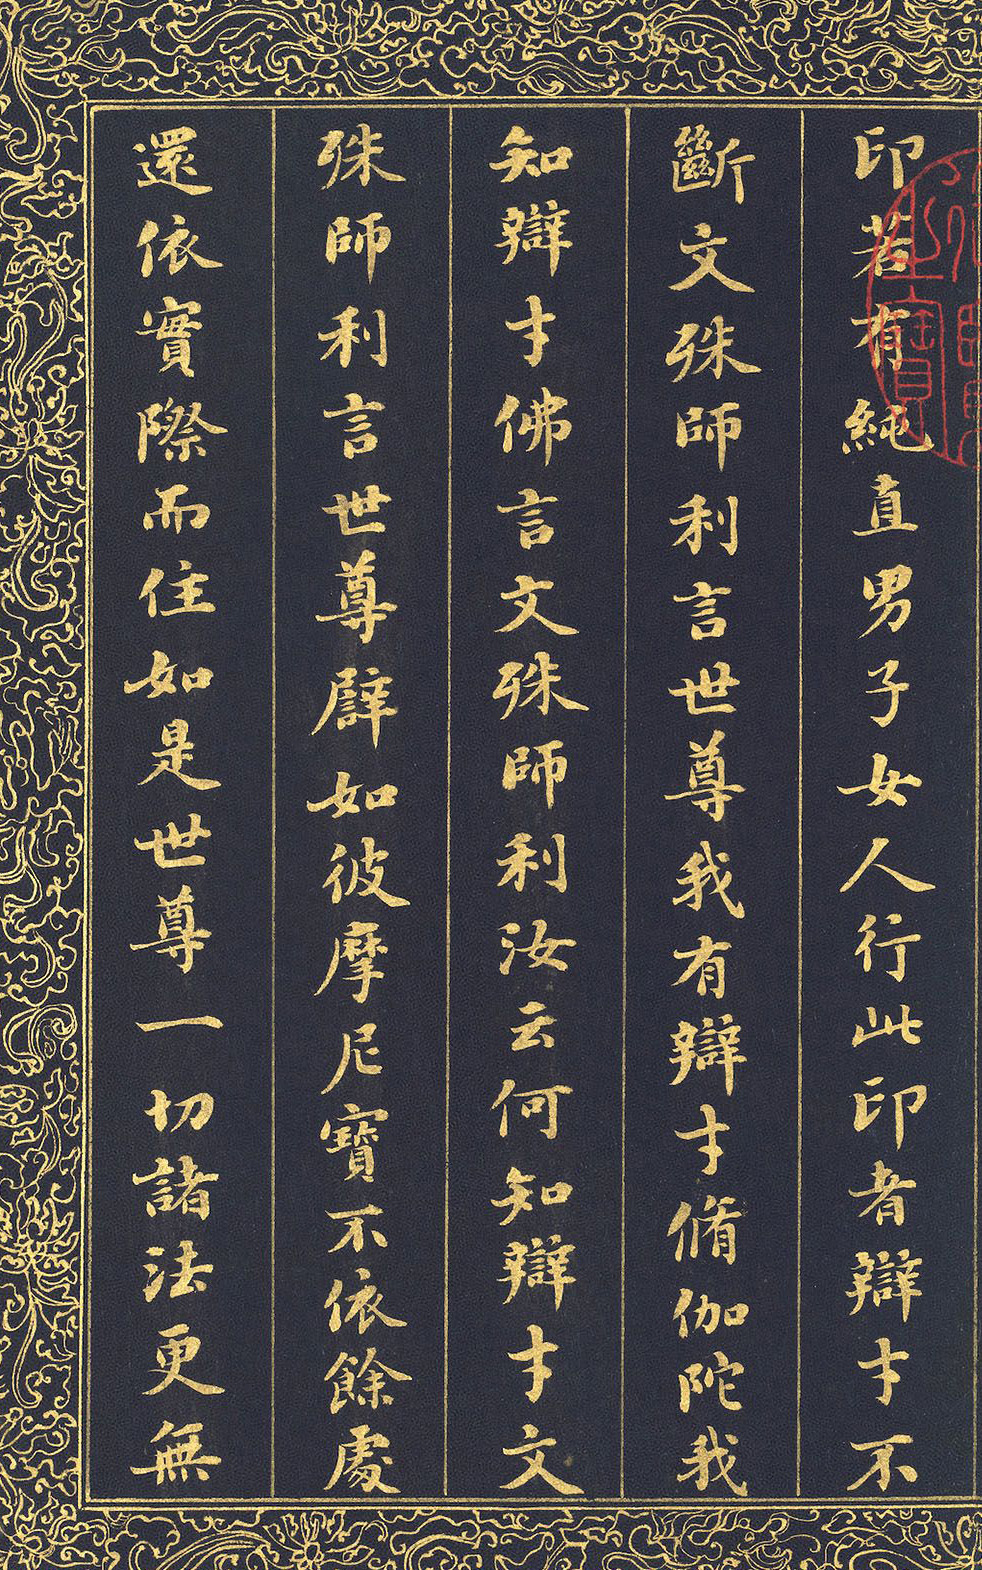 印若有純直男子女人行此印者辯才不
斷文殊師利言世尊我有辯才脩伽陀我
知辯才佛言文殊師利汝云何知辯才文
殊師利言世尊譬如彼摩尼寶不依餘處
還依實際而住如是世尊一切諸法更無